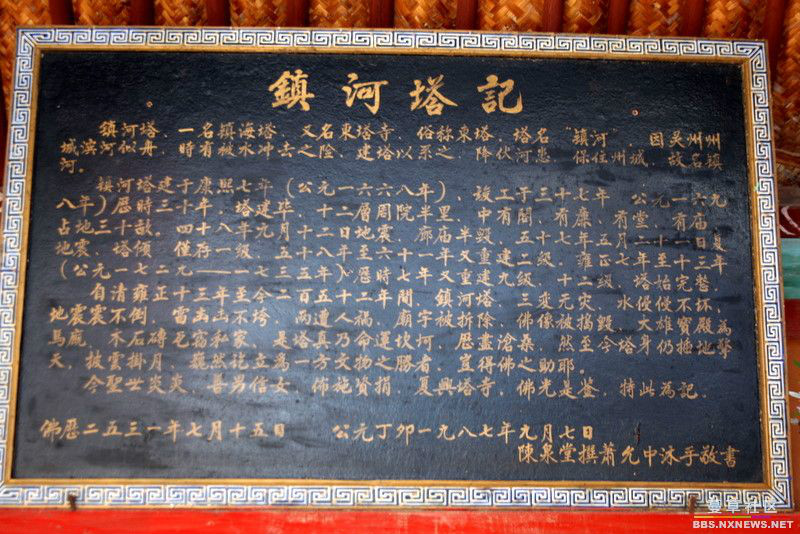 鎮河塔記
鎮河塔、一名镇海塔、又名東塔寺、俗称東塔、塔名“鎮河”因灵州州
城滨河似舟、時有被水冲去之险、建塔以系之、降伏河患、保住州城、故名鎮
河。
鎮河塔建于康熙七年(公元一六六八年)、竣工于三十七年 公元一六九
八年)歷時三十年、塔建毕、十二層周院半里、中有閣、有廉、有堂 有庙
占地三十亩。四十八年九月十二日地震、廊庙半毁、五十七年五月二十一日复
地震、塔倾 僅存一級 五十八年至六十一年又重建二級、雍正七年至十三年
(公元一七二九——一七三五年)歷時七年又重建九級、十二級 塔始完卷、
自清雍正十三年至今二百五十二年間、鎮河塔、三变元灾、水侵侵不坏、
地震震不倒、雷击击不垮 两遭人祸、廟宇被折除、佛像被搗毁、大雄寶殿為
馬廄、木石磚瓦富私家、是塔真乃命運坎坷、歷盡滄桑、然至今塔身仍拖地擎
天、披雲掛月、巍然竚立為一方文物之勝者、豈得佛之助耶。
今聖世炎炎、善男信女、佈施資捐、复興塔寺、佛光是鉴、特此為記。
佛歷二五三一年七月十五日 公元丁卯一九八七年九月七日
陳泉堂撰蕭允中沐手敬書
曼草社区
BBS.NXNEWS.NET